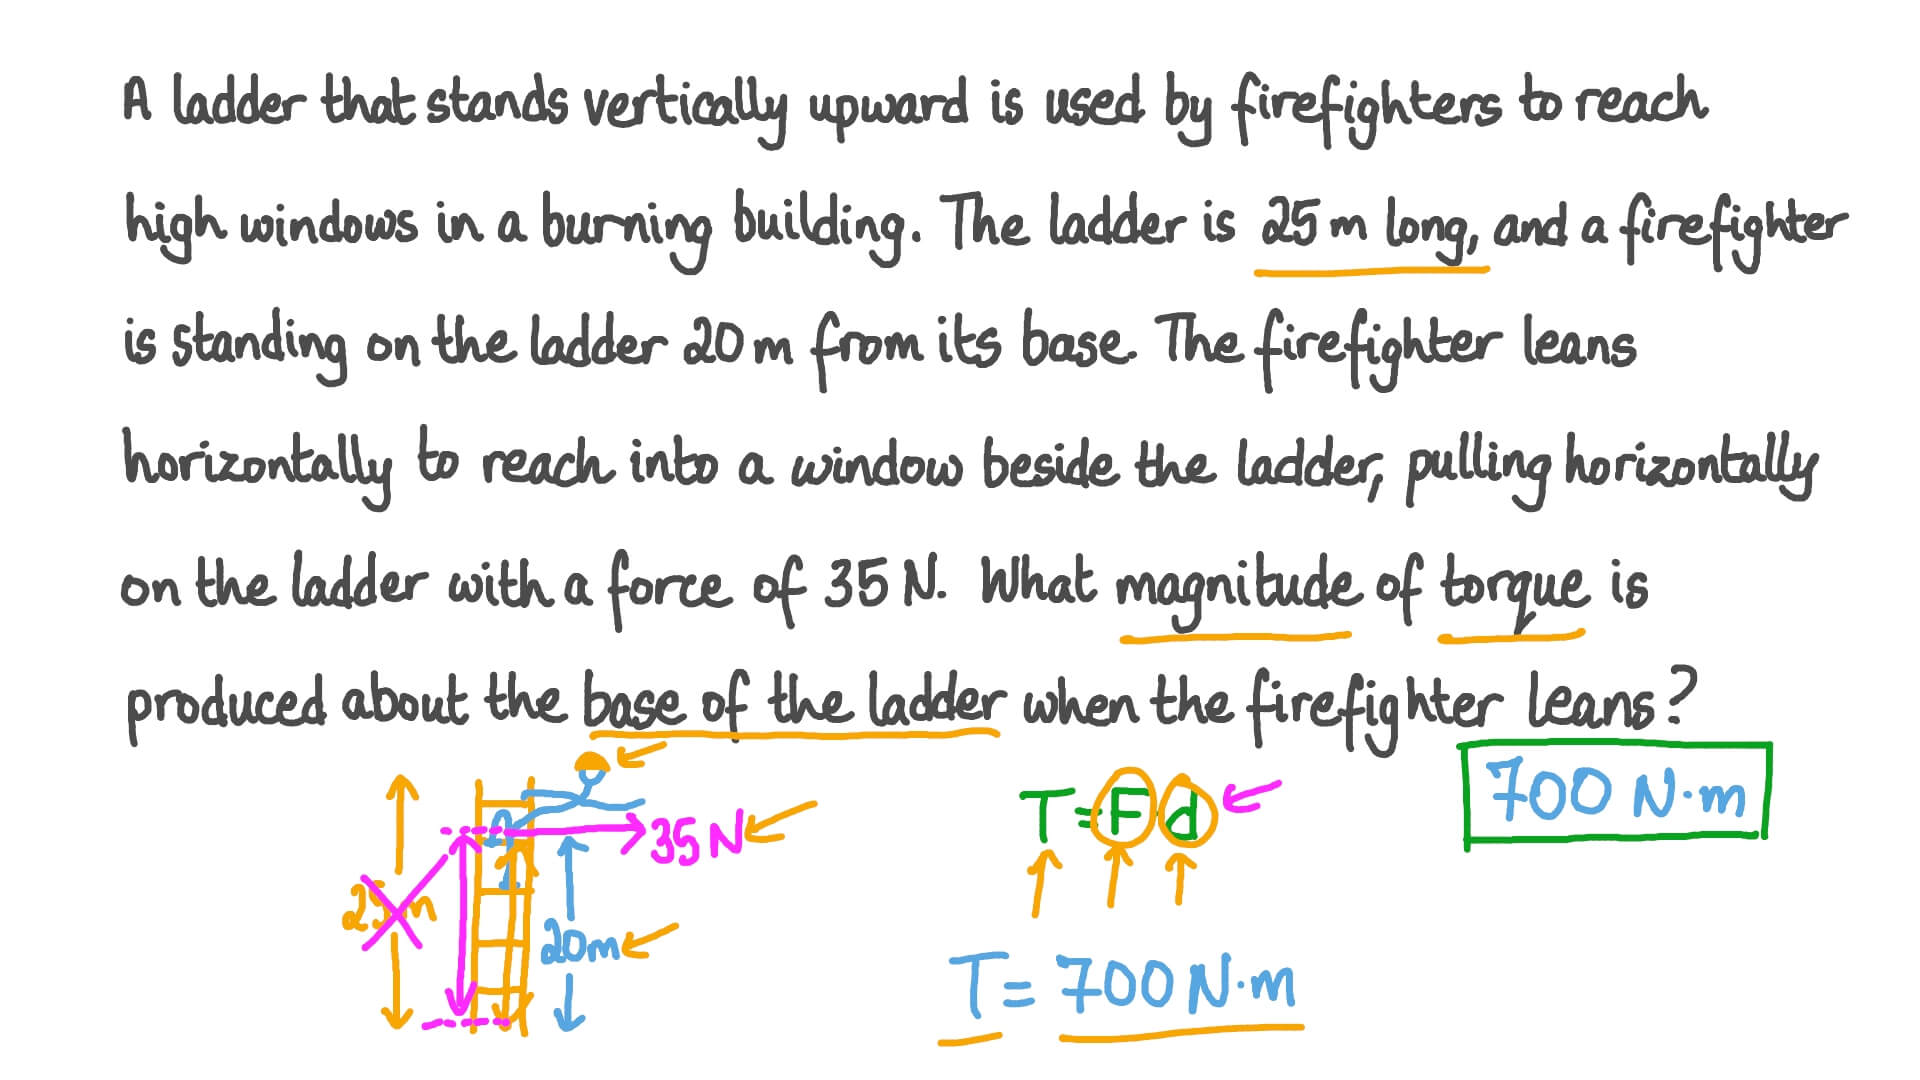 A ladder that stands vertically upward is used by firefighters to reach
high windows in a burning building. The ladder is 25 m long, and a firefighter
is standing on the ladder 20 m from its base. The firefighter leans
horizontally to reach into a window beside the ladder, pulling horizontally
on the ladder with a force of 35 N. What magnitude of torque is
produced about the base of the ladder when the firefighter leans?
700 N·m
35 N
T = F d
25 m
20 m
T = 700 N·m